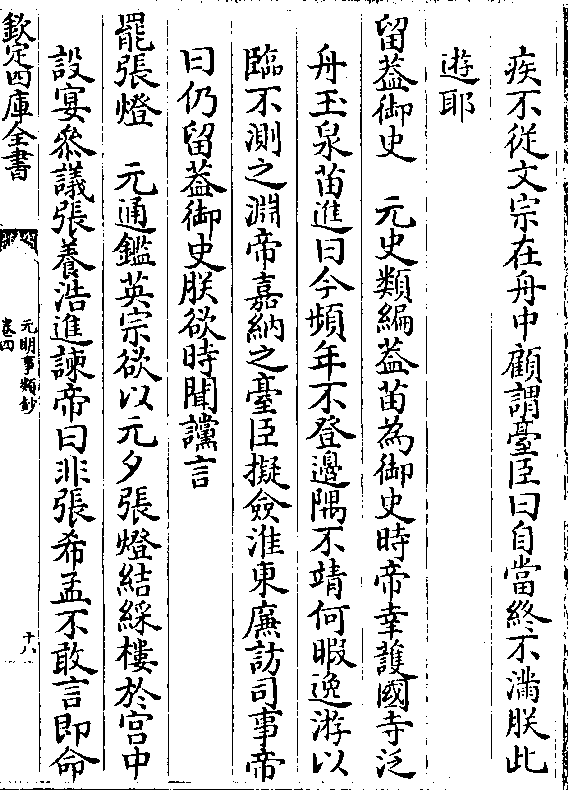 疾不從文宗在舟中顧謂臺臣曰自當終不滿朕此
遊耶
留葢御史　元史類編葢苗為御史時帝幸護國寺泛
舟玉泉苗進曰今頻年不登邊隅不靖何暇逸游以
臨不測之淵帝嘉納之臺臣擬僉淮東廉訪司事帝
曰仍留葢御史朕欲時聞讜言
罷張燈　元通鑑英宗欲以元夕張燈結綵樓於宫中
設宴叅議張養浩進諫帝曰非張希孟不敢言即命
欽定四庫全書
元明事類鈔
卷四
十八